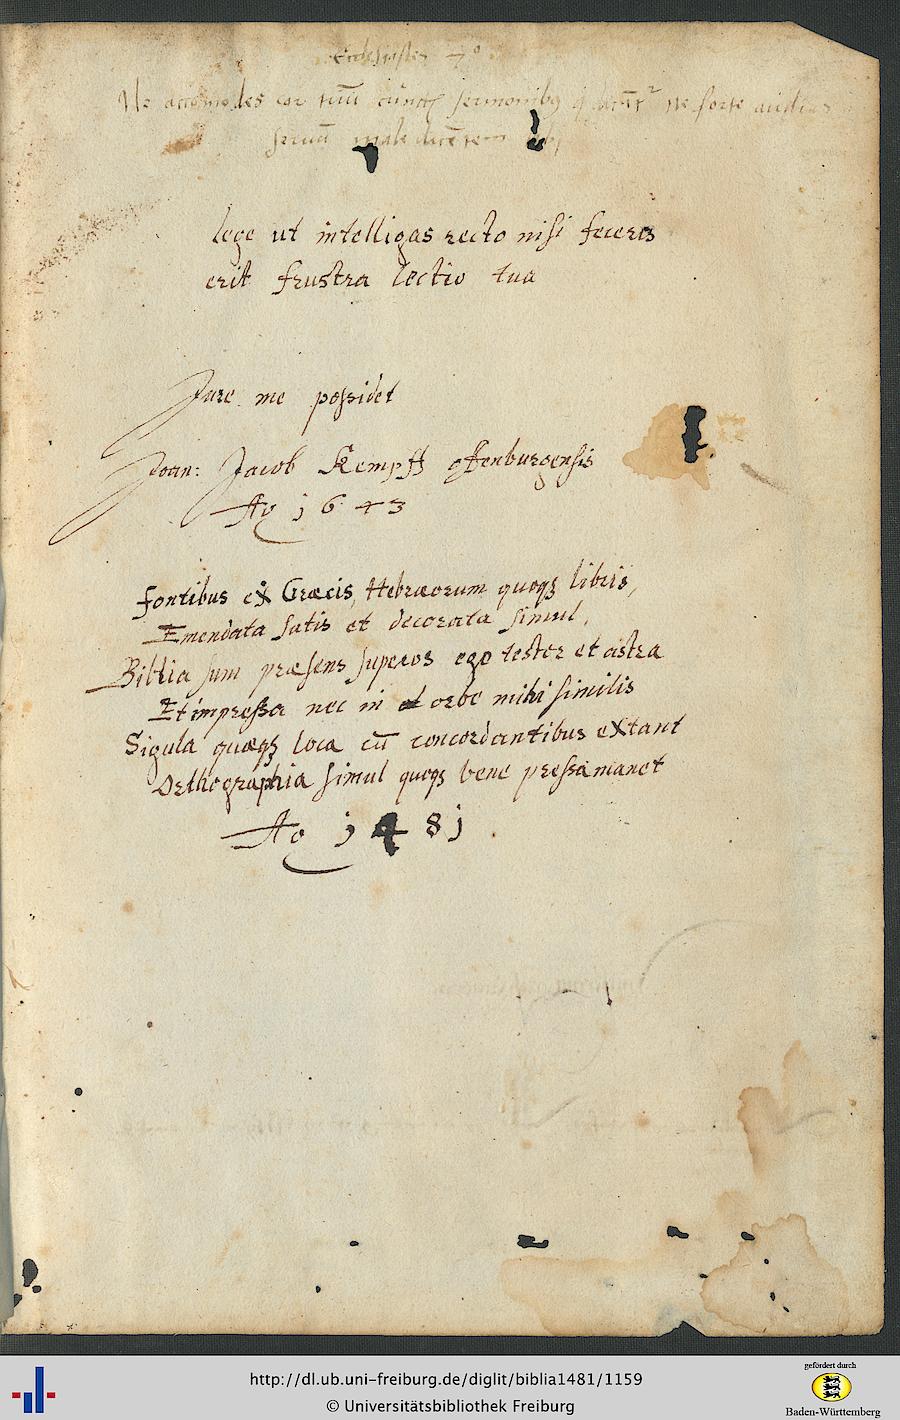 Ecclesiastes 7º
Ne accomodes cor tuū cunctꝭ sermonibꝰ q̄ ne forte audias
seruū male dicētem tibi
lege ut intelligas recto nisi feceris
erit frustra lectio tua
Jure me possidet
Joan: Jacob Kempff offenburgensis
Aō 1643
fontibus ex Græcis, Hebræorum quoqꝫ libris,
Emendata satis et decorata simul,
Biblia sum præsens superos ego testor et astra
Et impressa nec in orbe mihi similis
Sigula quæqꝫ loca cū concordantibus extant
Orthographia simul quoqꝫ bene pressa manet
Aō 1481
http://dl.ub.uni-freiburg.de/diglit/biblia1481/1159
© Universitätsbibliothek Freiburg
gefördert durch
Baden-Württemberg